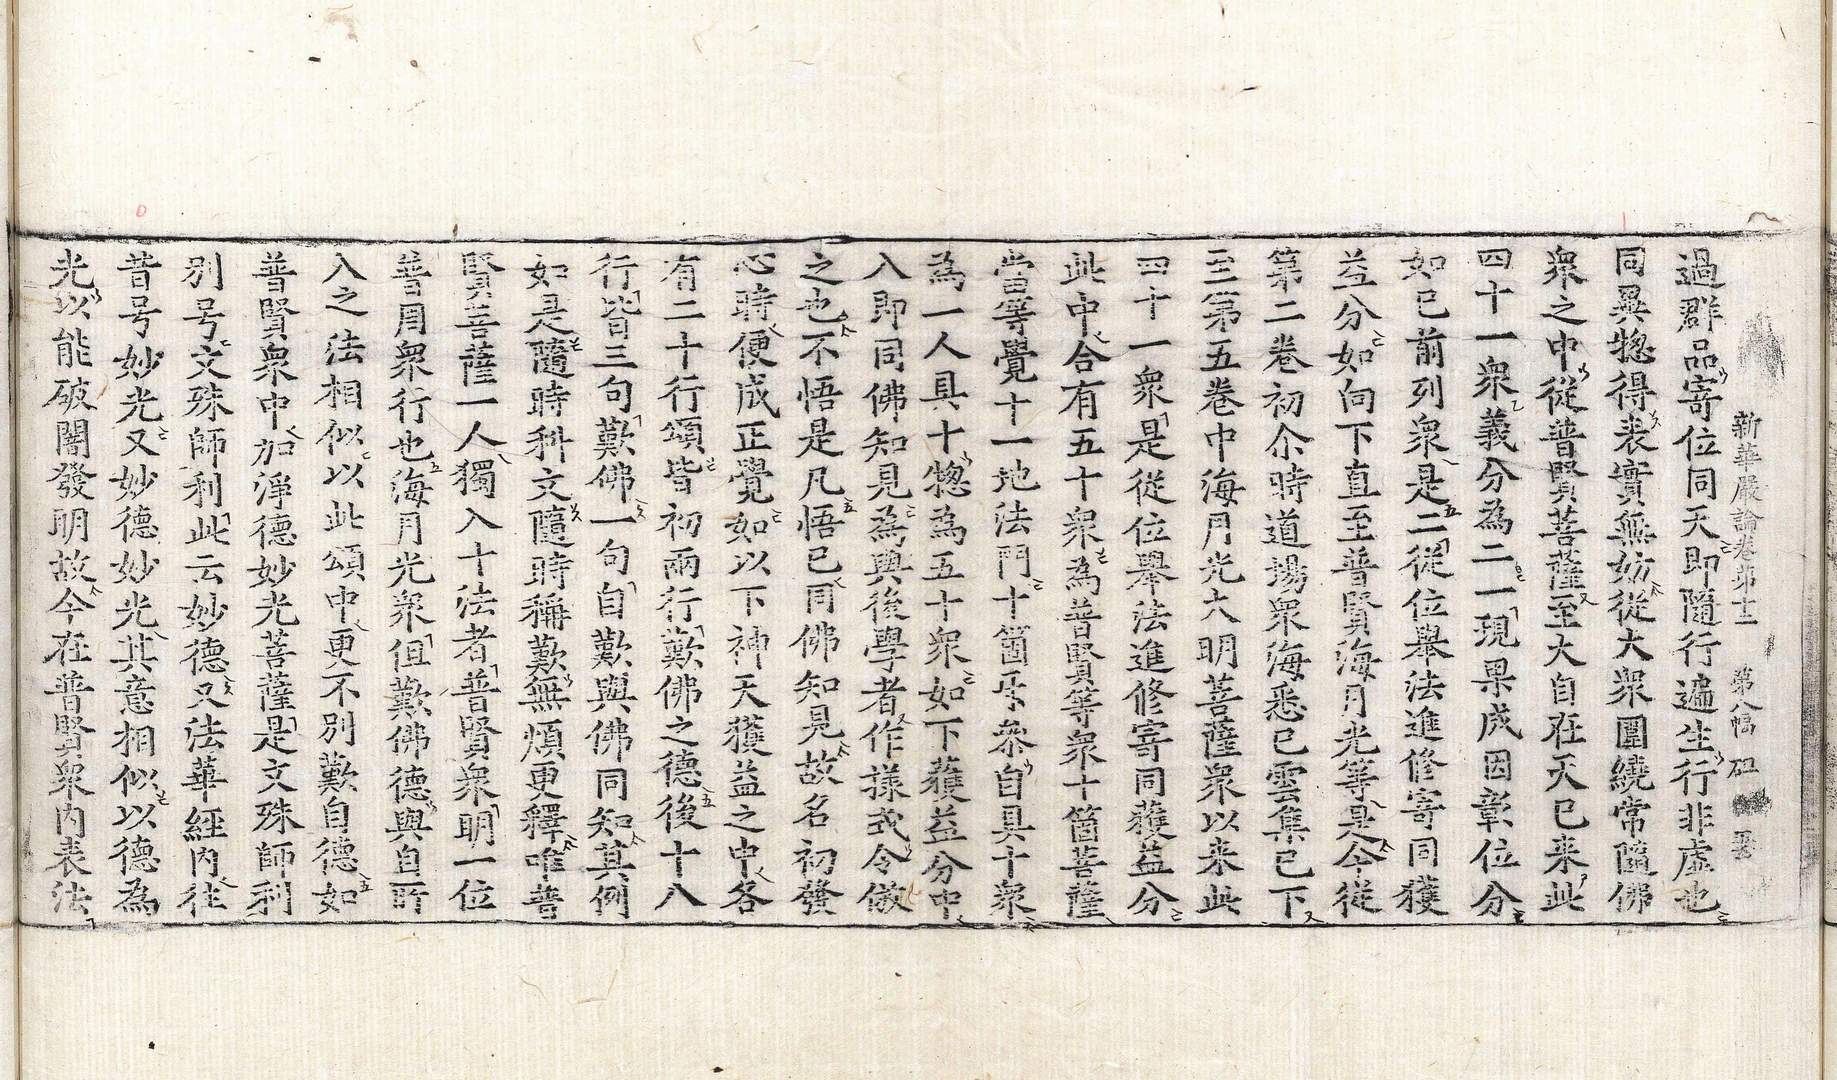 新華嚴論卷第十二 第八幅
過群品寄位同天即隨行遍生行非虛也
同異惣得表實無妨從大衆圍繞常隨佛
衆之中從普賢菩薩至大自在天已來此
四十一衆義分為二一現果成因彰位分
如已前列衆是二從位舉法進修寄同獲
益分如向下直至普賢海月光等是今從
第二卷初尒時道場衆海悉已雲集已下
至第五卷中海月光大明菩薩衆以来此
四十一衆是從位舉法進修寄同獲益分
此中合有五十衆為普賢等衆十箇菩薩
當等覺十一地法門十箇互叅自具十衆
為一人具十惣為五十衆如下獲益分中
入即同佛知見為與後學者作様式令倣
之也不悟是凡悟已同佛知見故名初發
心時便成正覺如以下神天獲益之中各
有二十行頌皆初兩行歎佛之德後十八
行皆三句歎佛一句自歎與佛同知其例
如是隨時科文隨時稱歎無煩更釋唯普
賢菩薩一人獨入十法者普賢衆明一位
普周衆行也海月光衆但歎佛德與自所
入之法相似以此頌中更不別歎自德如
普賢衆中加淨德妙光菩薩是文殊師利
別号文殊師利此云妙德又法華經內往
昔号妙光又妙德妙光其意相似以德為
光以能破闇發明故今在普賢衆內表法